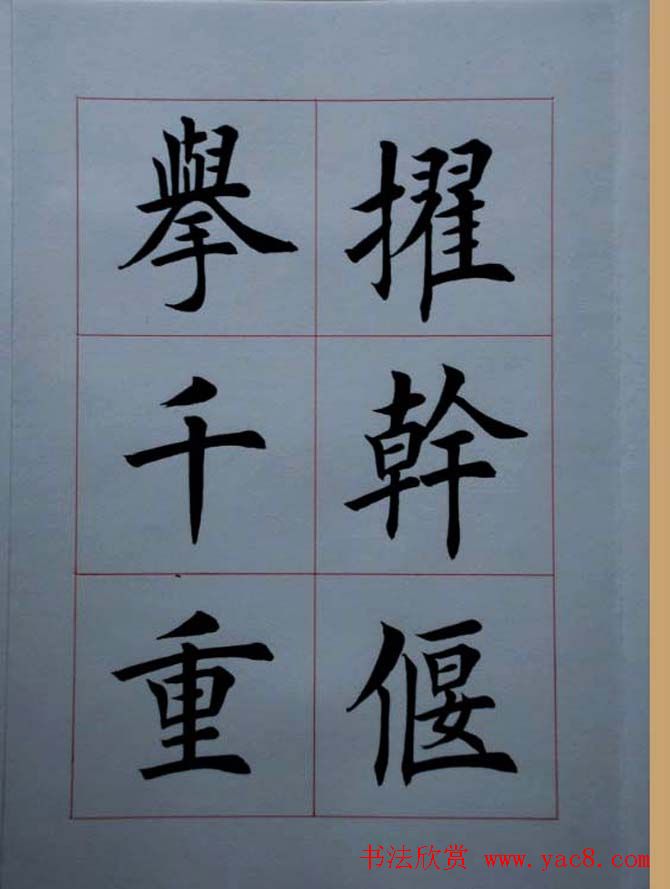 擢幹偃
舉千重
书法欣赏 www.yac8.com